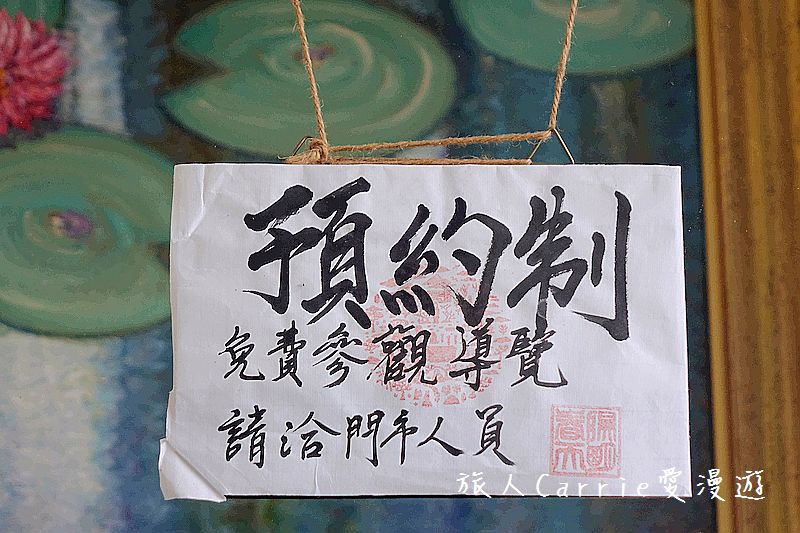 預約制
免費參觀導覽
請洽門市人員
旅人Carrie愛漫遊